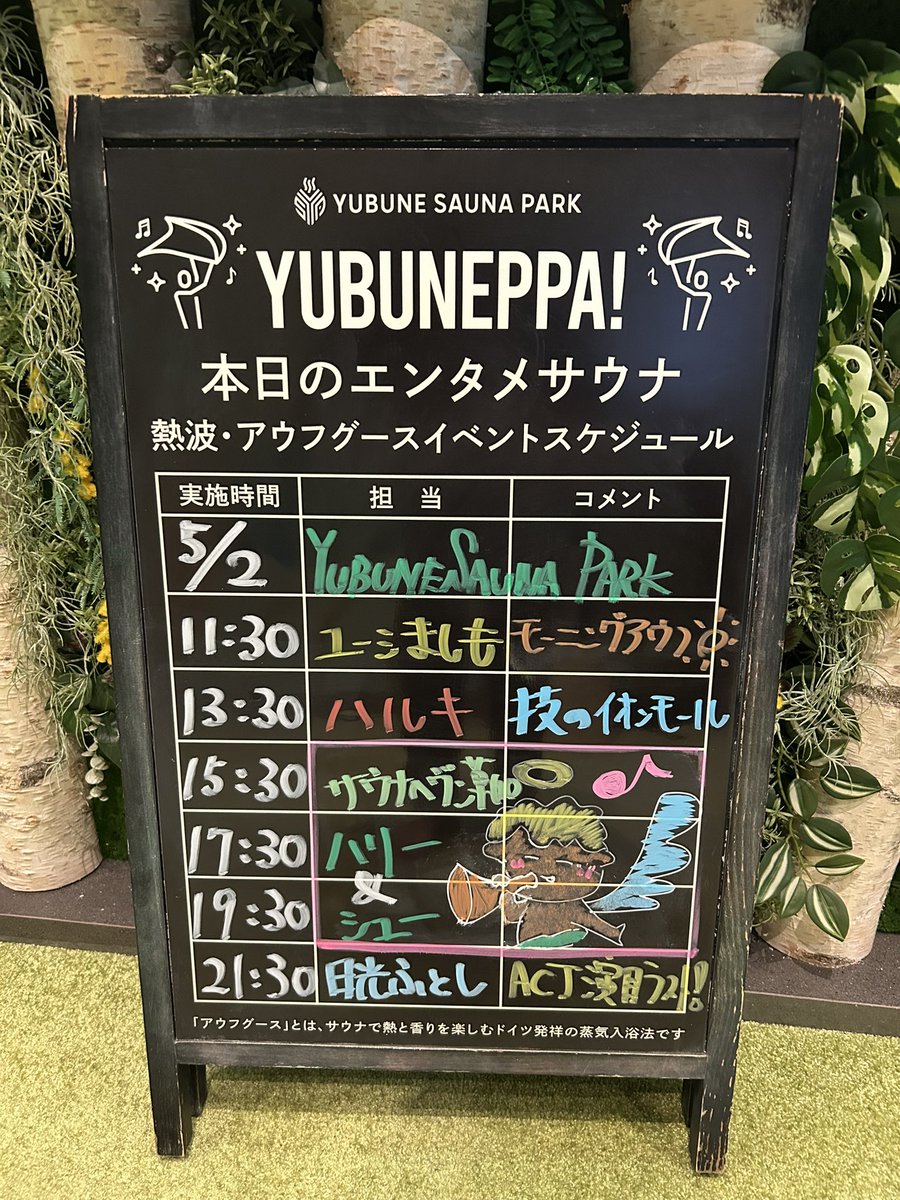 YUBUNE SAUNA PARK
YUBUNEPPA!
本日のエンタメサウナ
熱波・アウフグースイベントスケジュール
実施時間 担当 コメント
5/2 YUBUNE SAUNA PARK
11:30 ユージましも モーニングアウフ
13:30 ハルキ 技のイオンモール
15:30 サウナヘヴン草加
17:30 ハリー
&
19:30 シュー
21:30 日光ふとし ACJ演目ラスト!
「アウフグース」とは、サウナで熱と香りを楽しむドイツ発祥の蒸気入浴法です